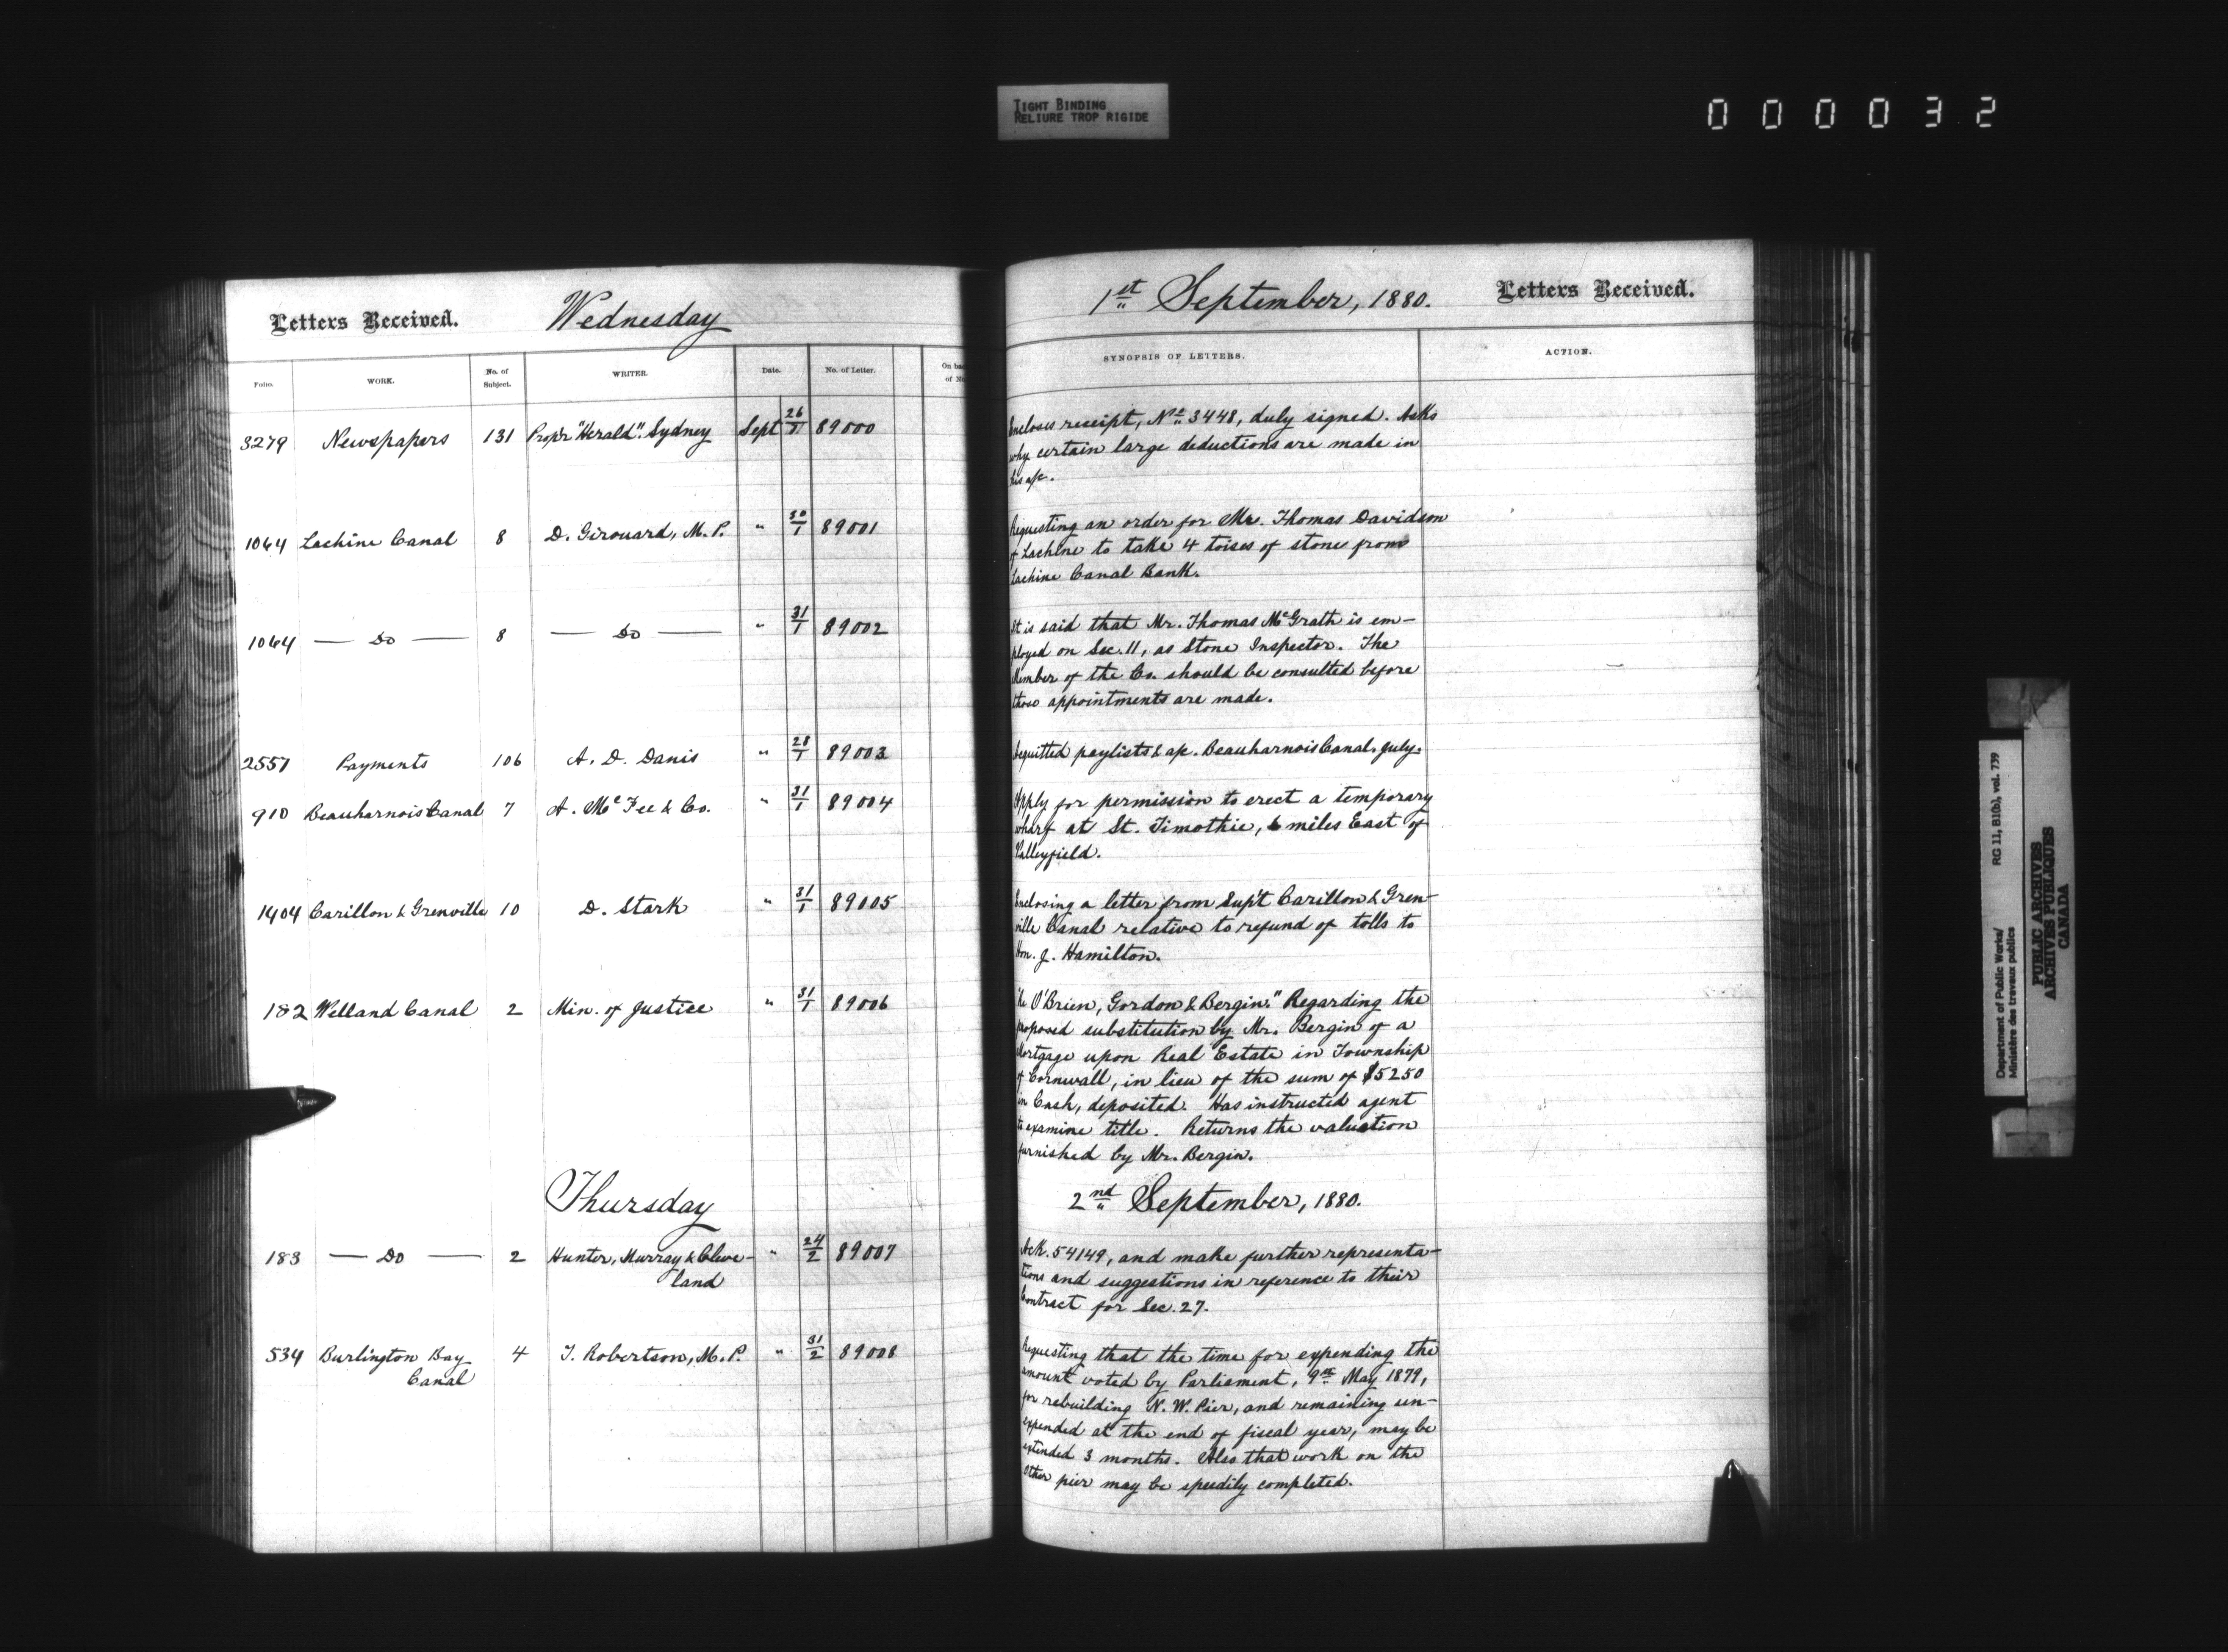 TIGHT BINDING
RELIURE TROP RIGIDE
000032
Letters Received. Wednesday
Folio. WORK. No. of Subject. WRITER. Date. No. of Letter. On bac of No
3279 Newspapers 131 Propr "Herald". Sydney Sept 26/1 89000
1064 Lachine Canal 8 D. Girouard, M.P. " 30/1 89001
1064 — Do — 8 — Do — " 31/1 89002
2557 Payments 106 A. D. Danis " 28/1 89003
910 Beauharnois Canal 7 A. McFee & Co. " 31/1 89004
1404 Carillon & Grenville 10 D. Stark " 31/1 89005
182 Welland Canal 2 Min. of Justice " 31/1 89006
Thursday
183 — Do — 2 Hunter, Murray & Cleve- " 24/2 89007
land
534 Burlington Bay 4 T. Robertson, M.P. " 31/2 89008
Canal
1st September, 1880. Letters Received.
SYNOPSIS OF LETTERS. ACTION.
Encloses receipt, No 3448, duly signed. Asks
why certain large deductions are made in
his a/c.
Requesting an order for Mr. Thomas Davidson
of Lachine to take 4 toises of stone from
Lachine Canal Bank.
It is said that Mr. Thomas McGrath is em-
ployed on Sec. 11, as Stone Inspector. The
Member of the Co. should be consulted before
those appointments are made.
Acquitted paylists & a/c. Beauharnois Canal. July.
Apply for permission to erect a temporary
wharf at St. Timothie, 6 miles East of
Valleyfield.
Enclosing a letter from Sup't Carillon & Gren-
ville Canal relative to refund of tolls to
Hon. J. Hamilton.
"Re O'Brien, Gordon & Bergin." Regarding the
proposed substitution by Mr. Bergin of a
Mortgage upon Real Estate in Township
of Cornwall, in lieu of the sum of $5250
in Cash, deposited. Has instructed agent
to examine title. Returns the valuation
furnished by Mr. Bergin.
2nd September, 1880.
Ack. 54149, and make further representa-
tions and suggestions in reference to their
Contract for Sec. 27.
Requesting that the time for expending the
amount voted by Parliament, 9th May 1879,
for rebuilding N. W. Pier, and remaining un-
expended at the end of fiscal year, may be
extended 3 months. Also that work on the
other pier may be speedily completed.
Department of Public Works/ RG 11, B1(b), vol. 739
Ministère des travaux publics
PUBLIC ARCHIVES
ARCHIVES PUBLIQUES
CANADA